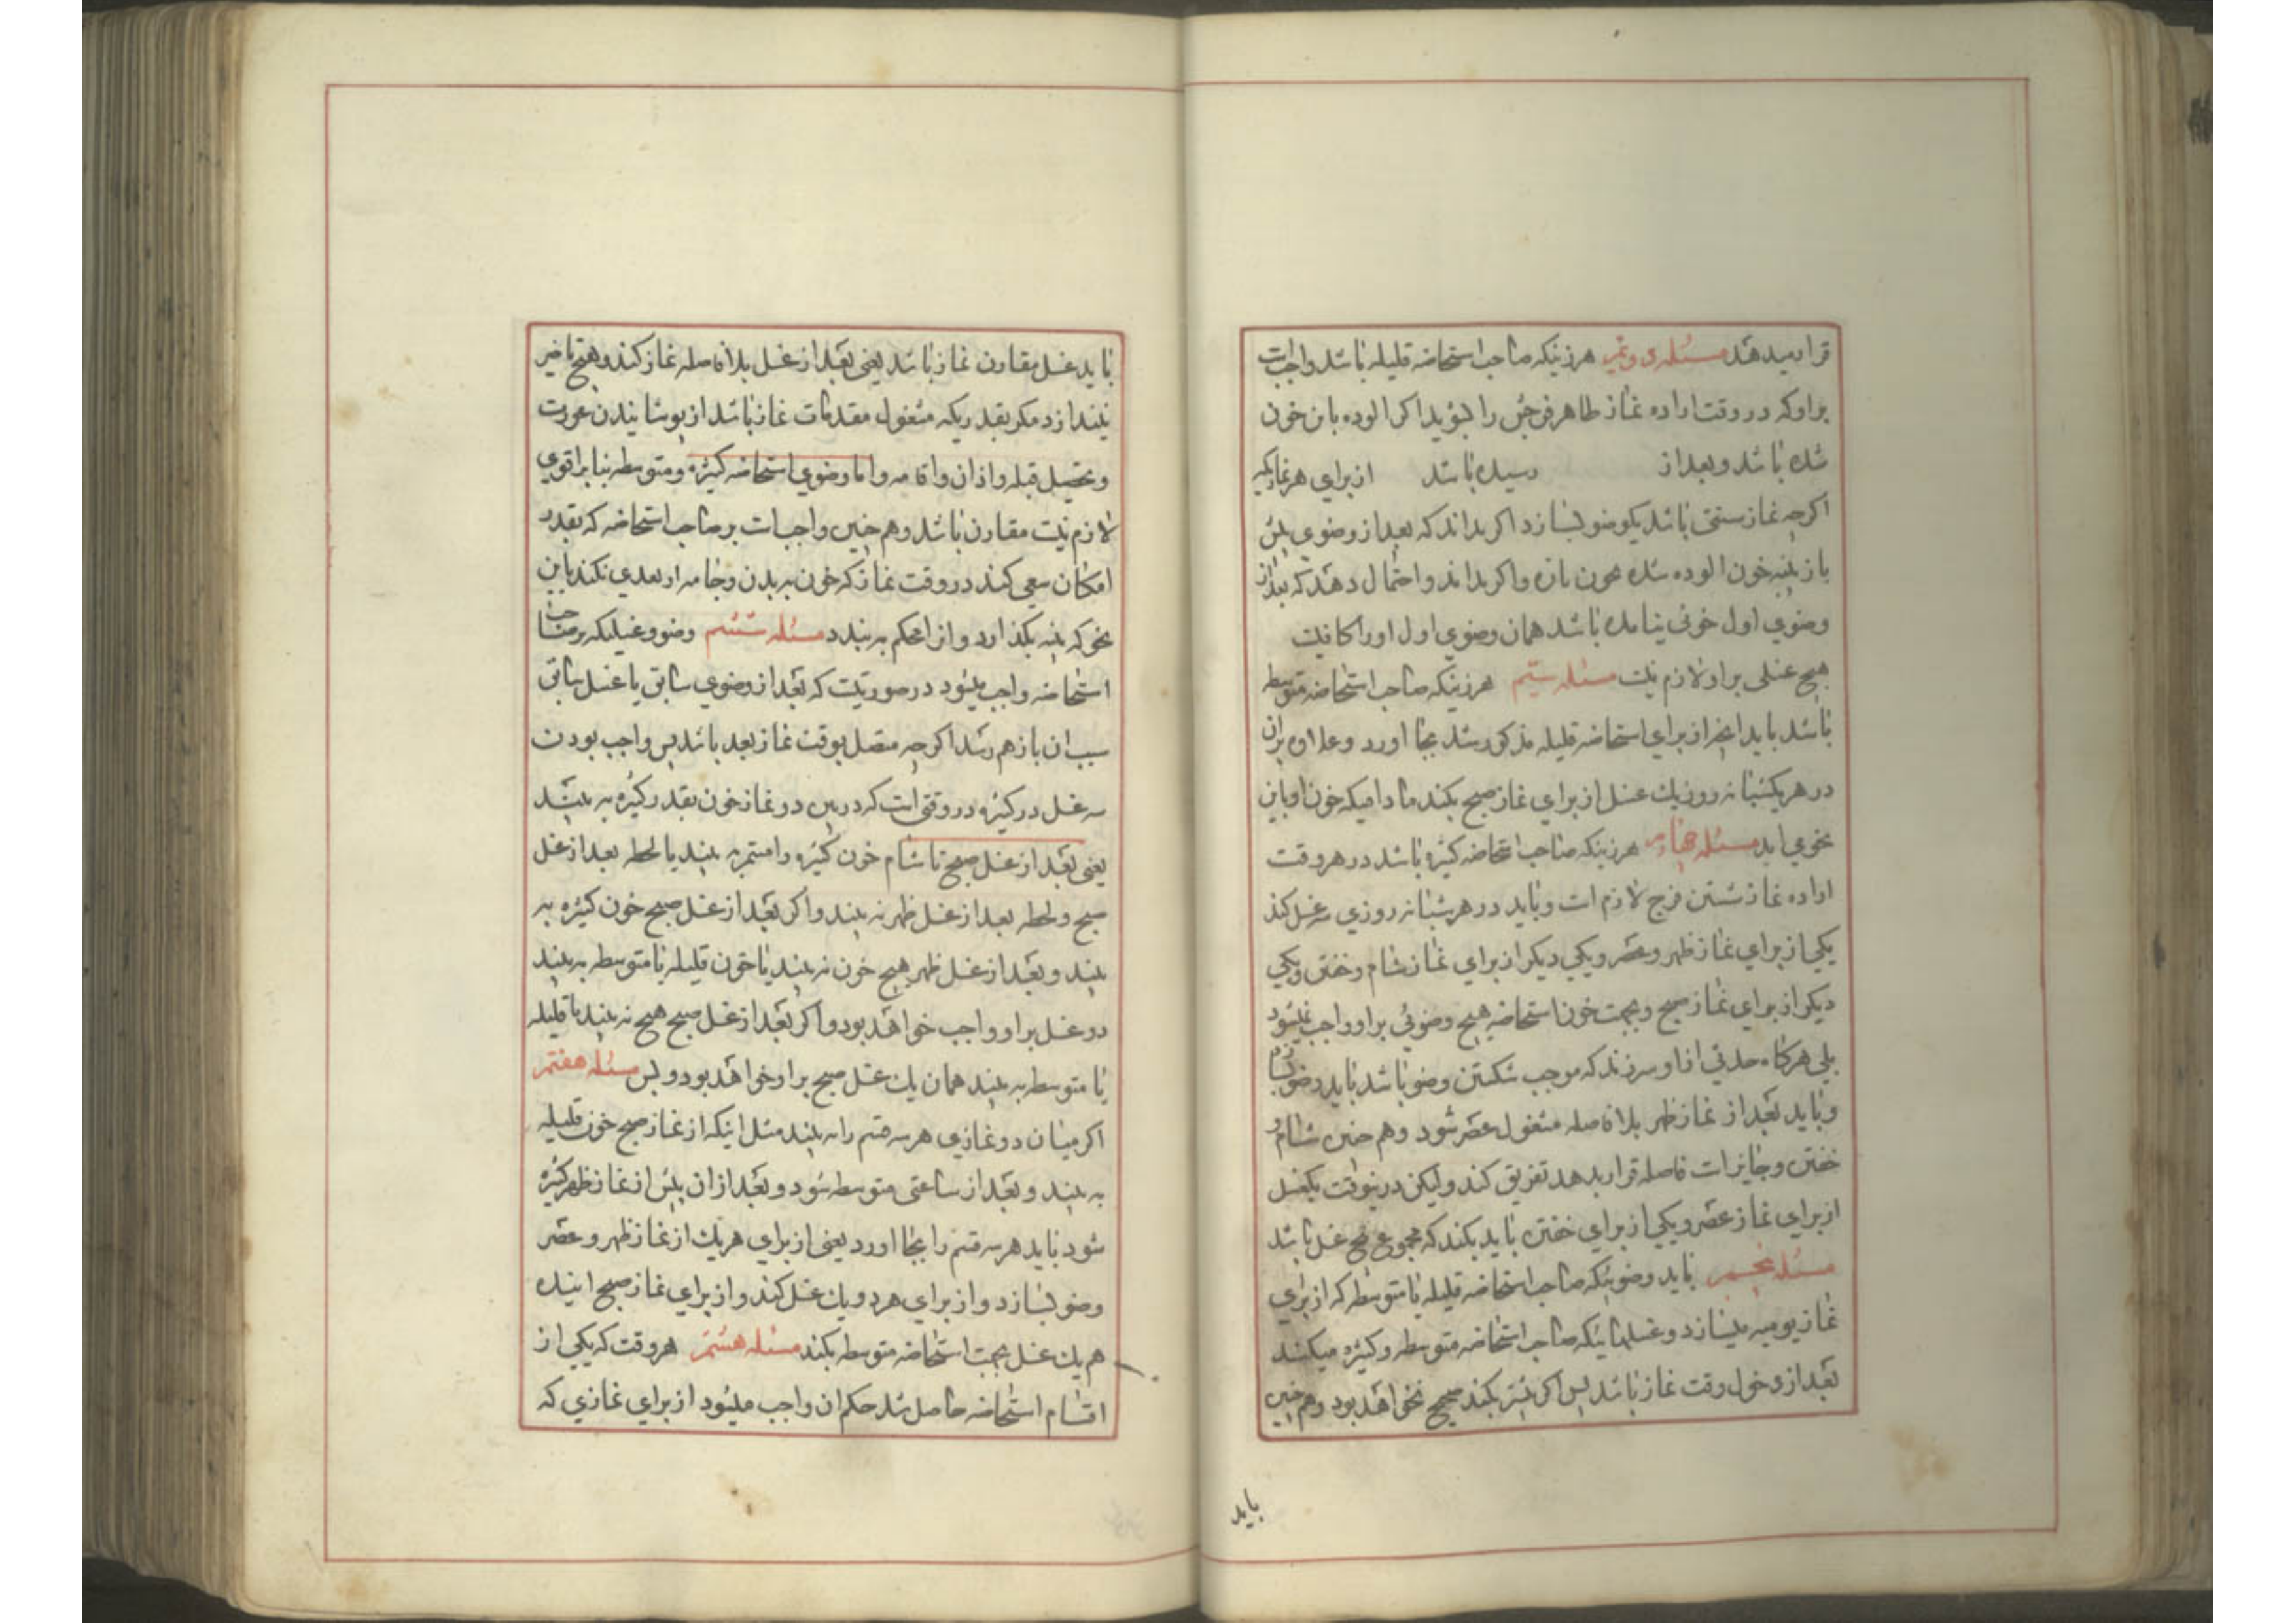 قرار میدهند مسئله دویم هر زنیکه صاحب استحاضه قلیله باشد واجبست
براو که در وقت اراده نماز ظاهر فرجش را بشوید اکر الوده بان خون
شده باشد و بعد از رسیده باشد از برای هر نمازیکه
اکرچه نماز سنتی باشد یکوضو بسازد اکر بداند که بعد از وضوی پیش
باز پنبه خون الوده شده واکر بداند و احتمال دهد که بعد از
وضوی اول خونی نیامده باشد همان وضوی اول اورا کافیست
هیچ غسلی براو لازم نیست مسئله سیّم هر زنیکه صاحب استحاضه متوسطه
باشد باید انچه از برای استحاضه قلیله مذکور شد بجا اورد و علاوه بران
در هر یکشبانه روز یك غسل از برای نماز صبح بکند مادامیکه خون او باین
نحوی اید مسئله چهارم هر زنیکه صاحب استحاضه کثیره باشد در هر وقت
اراده نماز شستن فرج لازم است و باید در هر شبانه روزی سه غسل کند
یکی از برای نماز ظهر و عصر و یکی دیکر از برای نماز شام و خفتن و یکی
دیکر از برای نماز صبح و بجهت خون استحاضه هیچ وضوئی براو واجب نمیشود
بلی هرکاه حدثی از او سر زند که موجب شکستن وضو باشد باید وضو بسازد
و باید بعد از نماز ظهر بلا فاصله مشغول عصر شود و هم چنین شام و
خفتن و جایز است فاصله قرار بدهد تفریق کند ولیکن درینوقت یکغسل
از برای نماز عصر و یکی از برای خفتن باید بکند که مجموع پنج غسل باشد
مسئله پنجم باید وضوئیکه صاحب استحاضه قلیله یا متوسطه که از برای
نماز یومیه میسازد و غسلهائیکه صاحب استحاضه متوسطه و کثیره میکند
بعد از دخول وقت نماز باشد پس اکر پیشتر بکند صحیح نخواهد بود و هم چنین
باید
باید غسل مقارن نماز باشد یعنی بعد از غسل بلا فاصله نماز کند و هیچ تاخیر
نیندازد مکر بقدریکه مشغول مقدمات نماز باشد از پوشانیدن عورت
و تحصیل قبله و اذان و اقامه و اما وضوی استحاضه کثیره و متوسطه بنابر اقوی
لازم نیست مقارن باشد و هم چنین واجبست بر صاحب استحاضه که بقدر
امکان سعی کند در وقت نماز که خون به بدن و جامه او تعدی نکند باین
نحو که پنبه بکذارد و انرا محکم به بندد مسئله ششم وضو و غسلیکه بر صاحب
استحاضه واجب میشود در صورتیست که بعد از وضوی سابق یا غسل سابق
سبب ان باز هم رسد اکرچه متصل بوقت نماز بعد باشد پس واجب بودن
سه غسل در کثیره در وقتی است که در بین دو نماز خون بقدر کثیره به بیند
یعنی بعد از غسل صبح تا شام خون کثیره را مستمر به بیند یا لحظه بعد از غسل
صبح و لحظه بعد از غسل ظهر به بیند و اکر بعد از غسل صبح خون کثیره به
بیند و بعد از غسل ظهر هیچ خون نه بیند یا خون قلیله یا متوسطه به بیند
دو غسل براو واجب خواهد بود و اکر بعد از غسل صبح هیچ نه بیند یا قلیله
یا متوسطه به بیند همان یك غسل صبح براو خواهد بود و بس مسئله هفتم
اکر میان دو نمازی هر سه قسم را به بیند مثل اینکه از نماز صبح خون قلیله
به بیند و بعد از ساعتی متوسطه شود و بعد از ان پیش از نماز ظهر کثیره
شود باید هر سه قسم را بجا اورد یعنی از برای هریك از نماز ظهر و عصر
وضو بسازد و از برای هردو یك غسل کند و از برای نماز صبح اینده
هم یك غسل بجهت استحاضه متوسطه بکند مسئله هشتم هر وقت که یکی از
اقسام استحاضه حاصل شد حکم ان واجب میشود از برای نمازی که